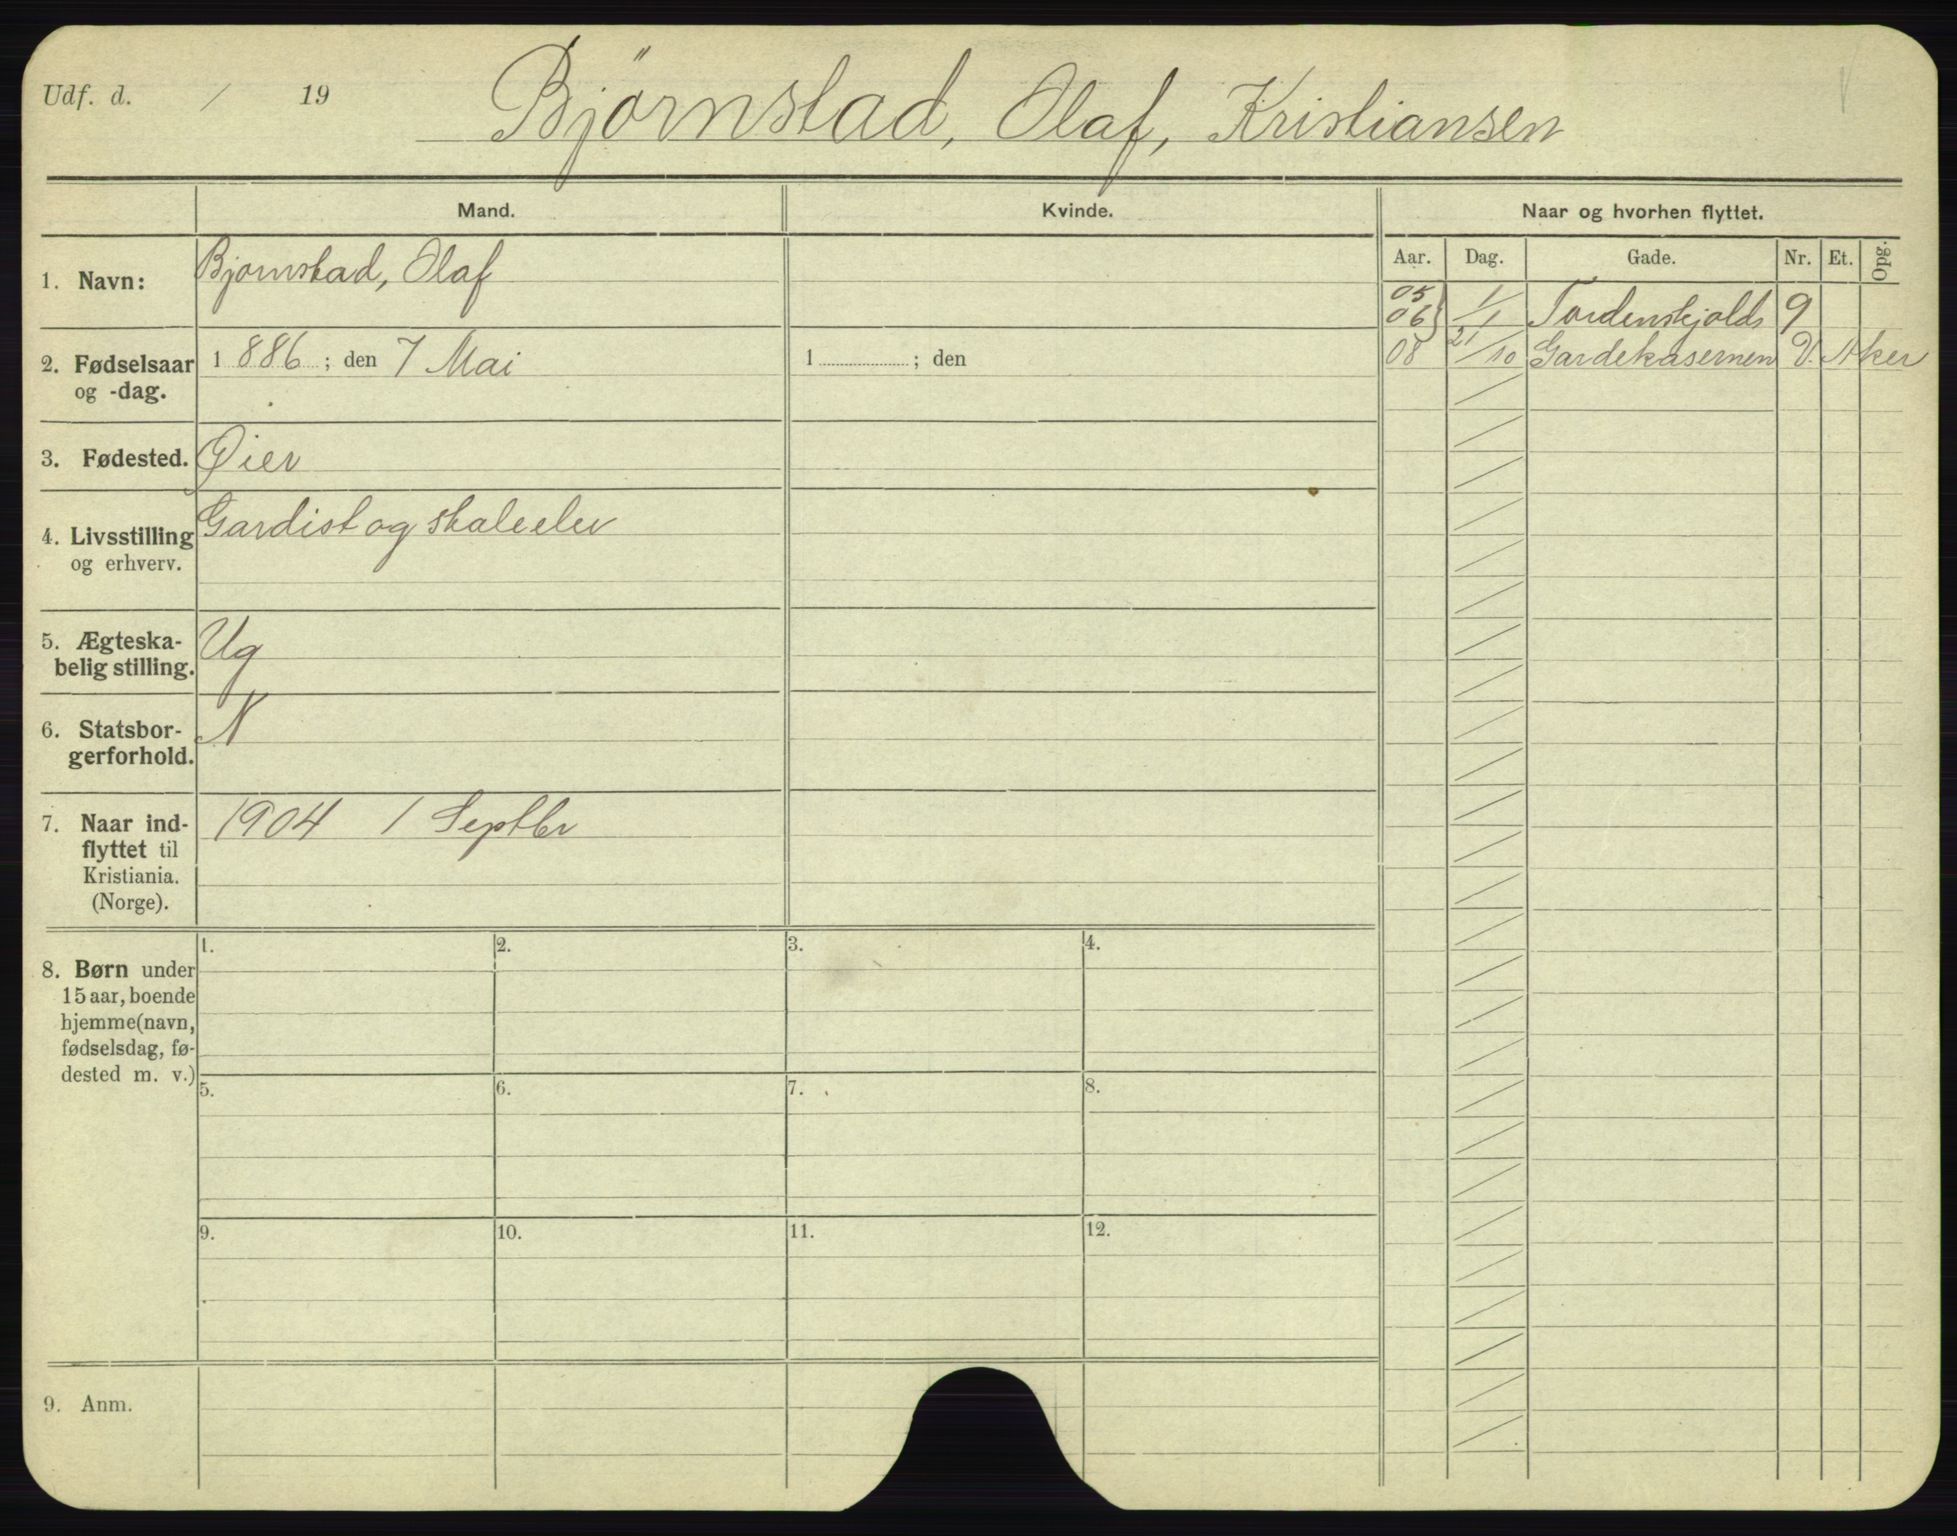 Udf. d. / 19
Bjørnstad, Olaf, Kristiansen
Mand.
Kvinde.
Naar og hvorhen flyttet.
Aar. Dag. Gade. Nr. Et. Opg.
1. Navn: Bjørnstad, Olaf
05
06 } 1/1 Tordenskjolds 9
08 21/10 Gardekasernen V. Aker
2. Fødselsaar 1886; den 7 Mai
1 ; den
og -dag.
3. Fødested. Øier
4. Livsstilling Gardist og skoleelev
og erhverv.
5. Ægteska-
belig stilling. Ug
6. Statsbor-
gerforhold. N
7. Naar ind- 1904 1 Septbr
flyttet til
Kristiania.
(Norge).
8. Børn under
15 aar, boende
hjemme (navn,
fødselsdag, fø-
dested m. v.)
1. 2. 3. 4.
5. 6. 7. 8.
9. 10. 11. 12.
9. Anm.